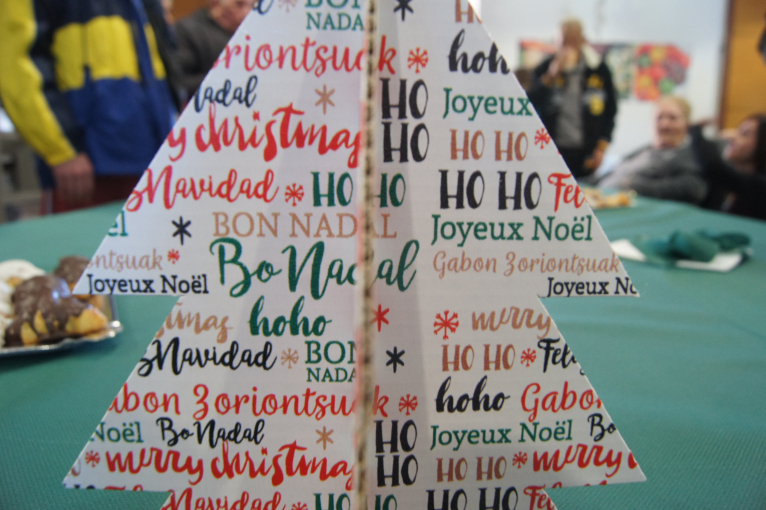 BON H
NADAL
oriontsuak hoh
Nadal HO Joyeux
y christmas HO HO HO
Navidad HO HO HO HO Fel
BON NADAL Joyeux Noël
ontsuak Bo Nadal Gabon Zoriontsuak
Joyeux Noël Joyeux No
hoho
tmas merry
Navidad BON HO HO Feli
NADA
abon Zoriontsuak hoho Gabo
Noël Bo Nadal HO Joyeux Noël Bo
merry christmas HO HO HO merry
Navidad HO HO HO Fe